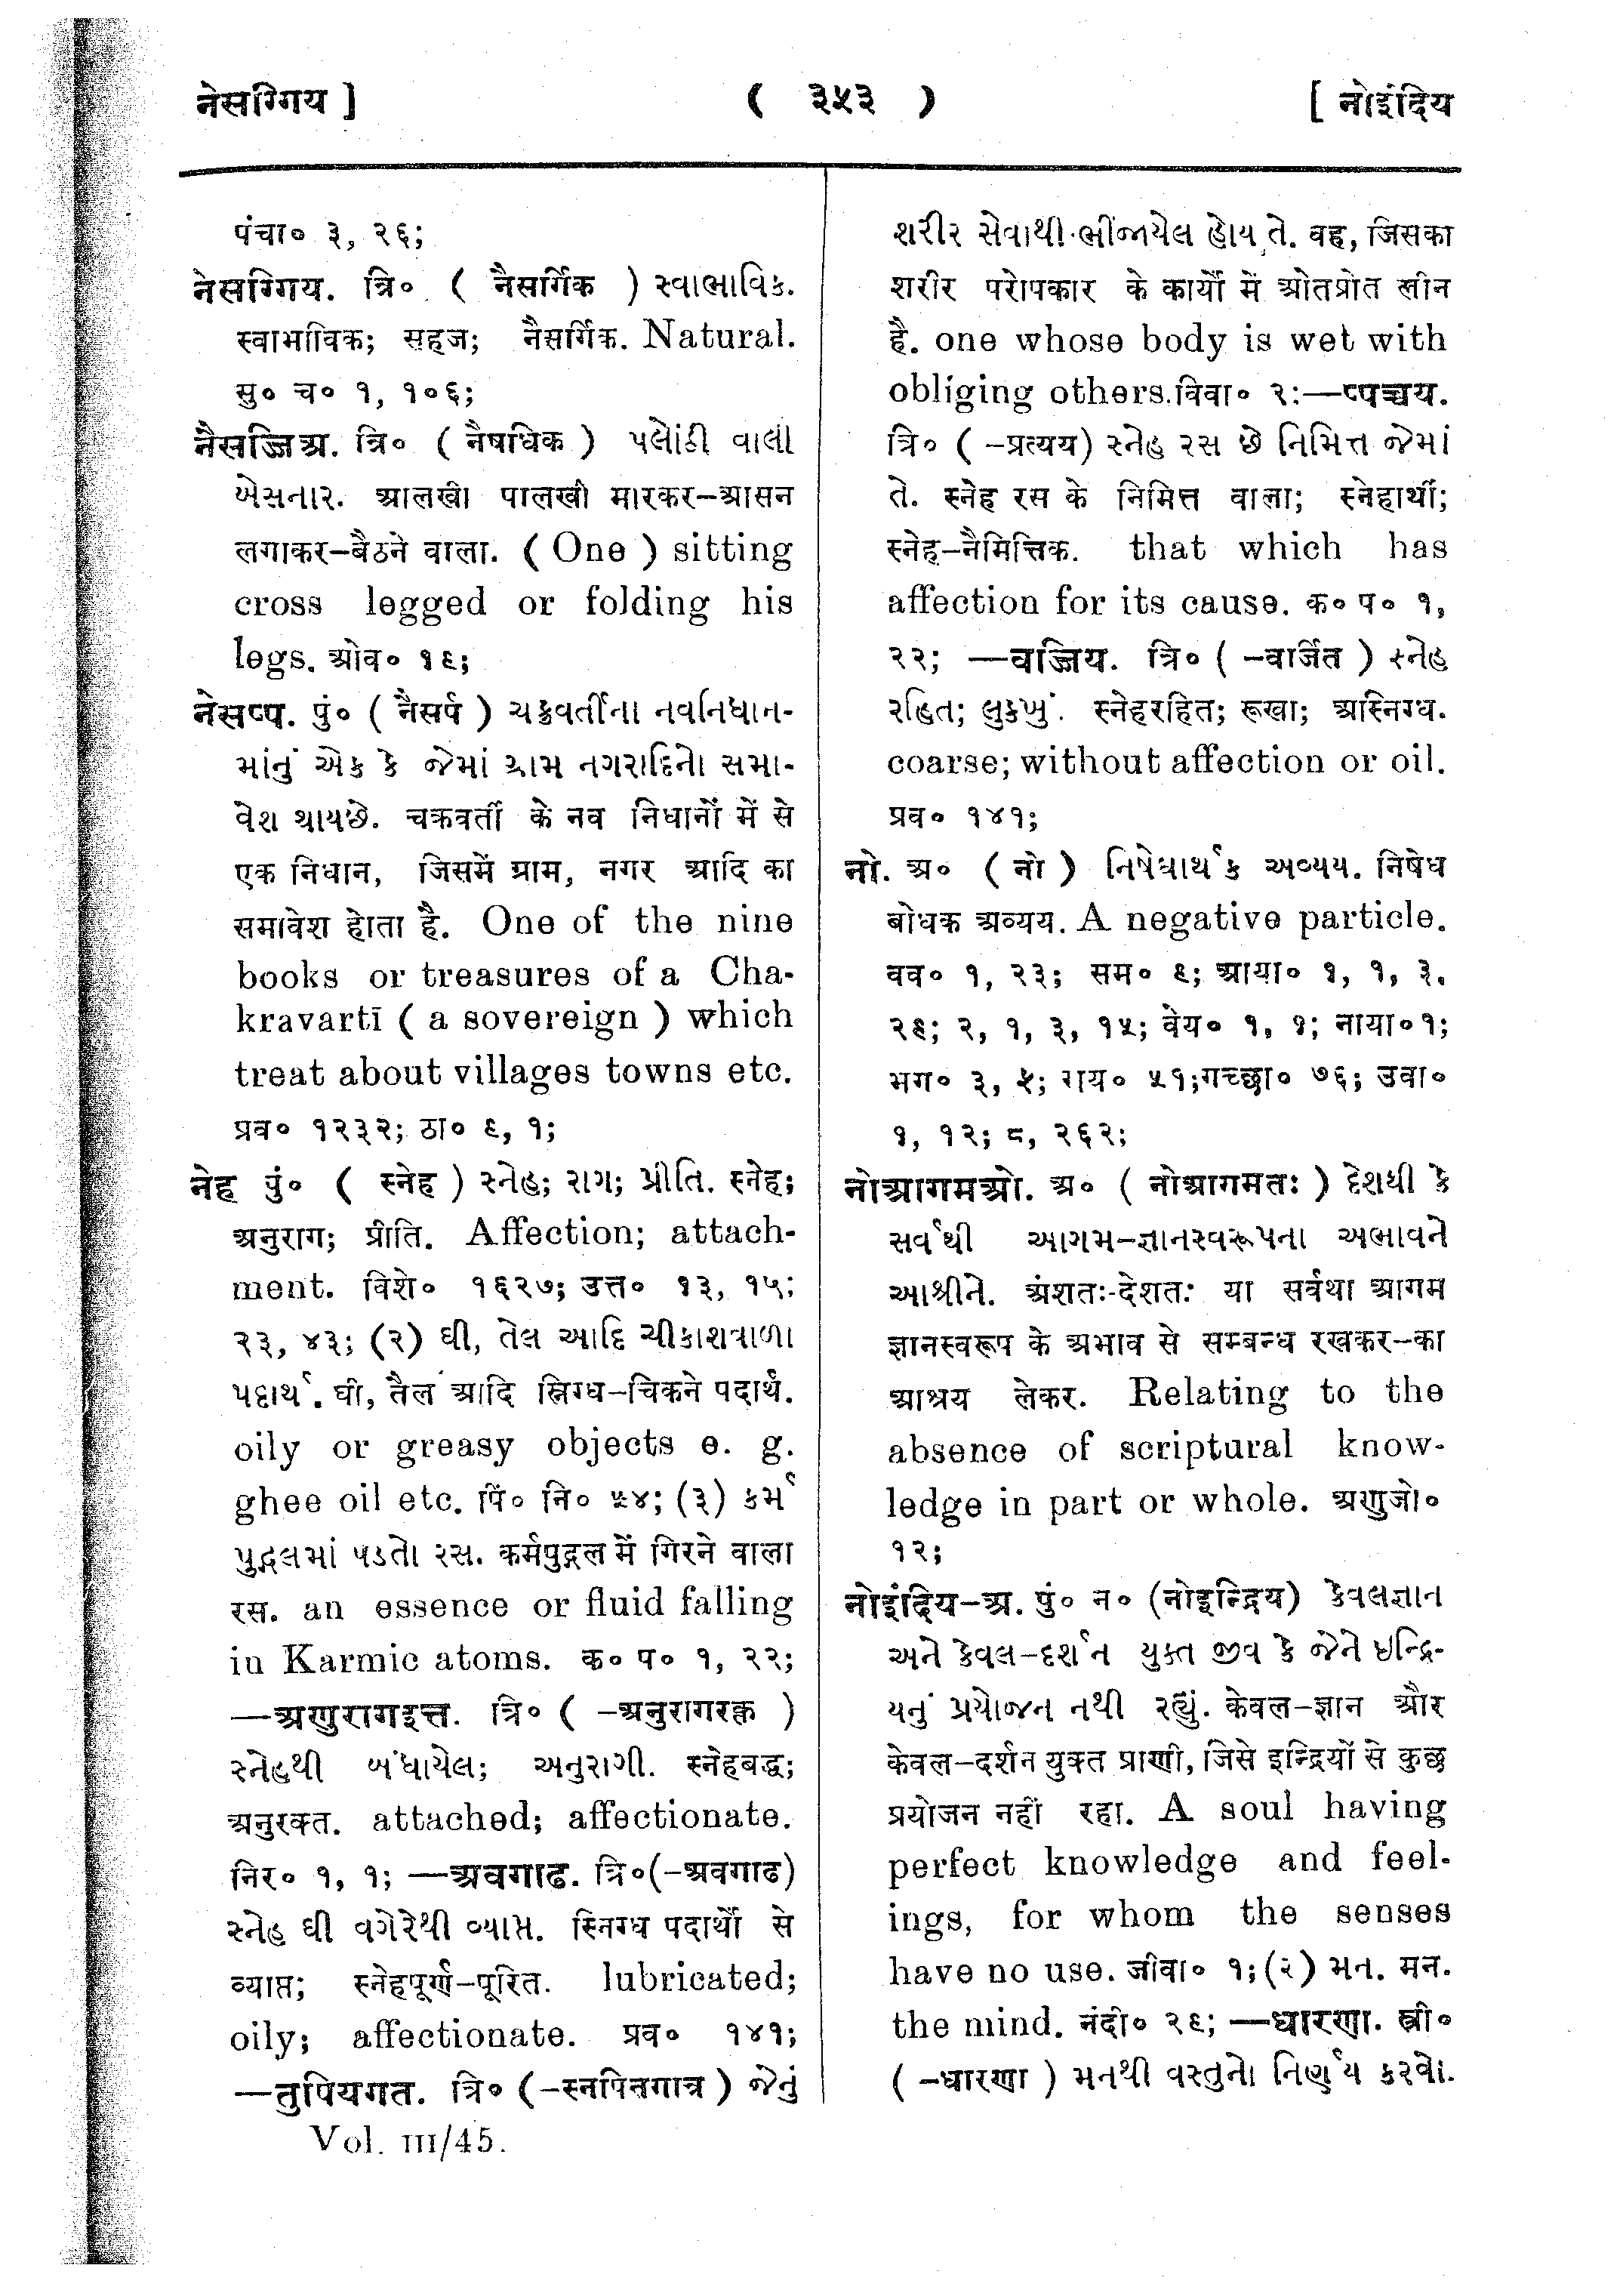 नेसग्गिय ] ( ३५३ ) [ नोइंदिय
पंचा० ३, २६;
नेसग्गिय. त्रि० ( नैसर्गिक ) સ્વાભાવિક.
स्वाभाविक; सहज; नैसर्गिक. Natural.
सु० च० १, १०६;
नैसज्जिअ. त्रि० ( नैषधिक ) પલોંઠી વાલી
બેસનાર. आलखी पालखी मारकर-आसन
लगाकर-बैठने वाला. ( One ) sitting
cross legged or folding his
legs. ओव० १६;
नेसप्प. पुं० ( नैसर्प ) ચક્રવર્તીના નવનિધાન-
માંનું એક કે જેમાં ગ્રામ નગરાદિનો સમા-
વેશ થાયછે. चक्रवर्ती के नव निधानों में से
एक निधान, जिसमें ग्राम, नगर आदि का
समावेश होता है. One of the nine
books or treasures of a Cha-
kravartī ( a sovereign ) which
treat about villages towns etc.
प्रव० १२३२; ठा० ६, १;
नेह पुं० ( स्नेह ) સ્નેહ; રાગ; પ્રીતિ. स्नेह;
अनुराग; प्रीति. Affection; attach-
ment. विशे० १६२७; उत्त० १३, १५;
२३, ४३; (२) ઘી, તેલ આદિ ચીકાશવાળા
પદાર્થ. घी, तैल आदि स्निग्ध-चिकने पदार्थ.
oily or greasy objects e. g.
ghee oil etc. पिं० नि० ५४; (३) કર્મ
પુદ્ગલમાં પડતો રસ. कर्मपुद्गल में गिरने वाला
रस. an essence or fluid falling
in Karmic atoms. क० प० १, २२;
—अणुरागइत्त. त्रि० ( -अनुरागरक्त )
સ્નેહથી બંધાયેલ; અનુરાગી. स्नेहबद्ध;
अनुरक्त. attached; affectionate.
निर० १, १; —अवगाढ. त्रि०(-अवगाढ)
સ્નેહ ઘી વગેરેથી વ્યાપ્ત. स्निग्ध पदार्थों से
व्याप्त; स्नेहपूर्ण-पूरित. lubricated;
oily; affectionate. प्रव० १४१;
—तुपियगत. त्रि० (-स्नपितगात्र ) જેનું
Vol. III/45.
શરીર સેવાથી ભીંજાયેલ હોય તે. वह, जिसका
शरीर परोपकार के कार्यों में ओतप्रोत लीन
है. one whose body is wet with
obliging others. विवा० २:—प्पच्चय.
त्रि० ( -प्रत्यय) સ્નેહ રસ છે નિમિત્ત જેમાં
તે. स्नेह रस के निमित्त वाला; स्नेहार्थी;
स्नेह-नैमित्तिक. that which has
affection for its cause. क० प० १,
२२; —वज्जिय. त्रि० ( -वर्जित ) સ્નેહ
રહિત; લુક્ખું. स्नेहरहित; रूखा; अस्निग्ध.
coarse; without affection or oil.
प्रव० १४१;
नो. अ० ( नो ) નિષેધાર્થક અવ્યય. निषेध
बोधक अव्यय. A negative particle.
वव० १, २३; सम० ६; आया० १, १, ३,
२६; २, १, ३, १५; वेय० १, १; नाया०१;
भग० ३, ५; राय० ५१;गच्छा० ७६; उवा०
१, १२; ८, २६२;
नोआगमओ. अ० ( नोआगमतः ) દેશથી કે
સર્વથી આગમ-જ્ઞાનસ્વરૂપના અભાવને
આશ્રીને. अंशतः-देशतः या सर्वथा आगम
ज्ञानस्वरूप के अभाव से सम्बन्ध रखकर-का
आश्रय लेकर. Relating to the
absence of scriptural know-
ledge in part or whole. अणुजो०
१२;
नोइंदिय-अ. पुं० न० (नोइन्द्रिय) કેવલજ્ઞાન
અને કેવલ-દર્શન યુક્ત જીવ કે જેને ઇન્દ્રિ-
યનું પ્રયોજન નથી રહ્યું. केवल-ज्ञान और
केवल-दर्शन युक्त प्राणी, जिसे इन्द्रियों से कुछ
प्रयोजन नहीं रहा. A soul having
perfect knowledge and feel-
ings, for whom the senses
have no use. जीवा० १; (२) મન. मन.
the mind. नंदी० २६; —धारणा. स्त्री०
( -धारणा ) મનથી વસ્તુનો નિર્ણય કરવો.